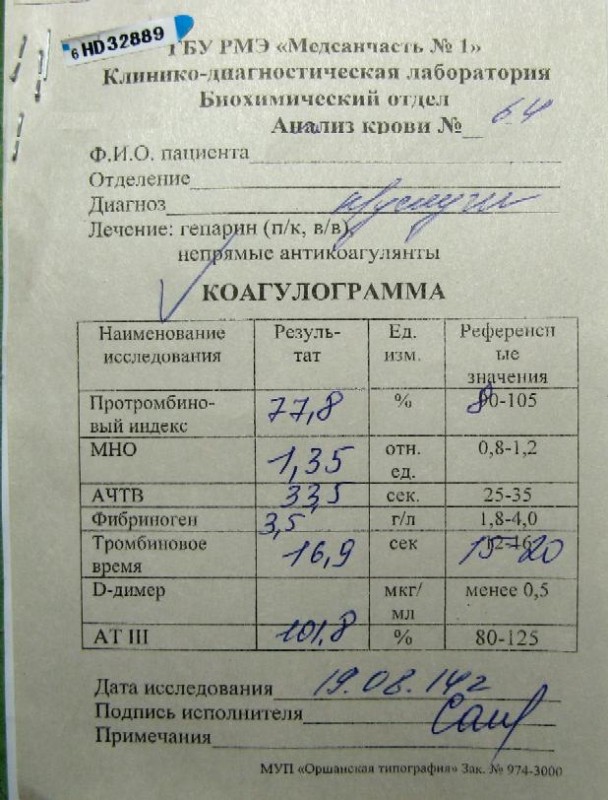 6 HD32889
ГБУ РМЭ «Медсанчасть № 1»
Клинико-диагностическая лаборатория
Биохимический отдел
Анализ крови № 64
Ф.И.О. пациента
Отделение
Диагноз
Лечение: гепарин (п/к, в/в),
непрямые антикоагулянты
КОАГУЛОГРАММА
Наименование исследования Резуль-тат Ед. изм. Референсные значения
Протромбино-вый индекс 77,8 % 80-105
МНО 1,35 отн. ед. 0,8-1,2
АЧТВ 33,5 сек. 25-35
Фибриноген 3,5 г/л 1,8-4,0
Тромбиновое время 16,9 сек 15-20
D-димер мкг/мл менее 0,5
АТ III 101,8 % 80-125
Дата исследования 19.08.14г
Подпись исполнителя
Примечания
МУП «Оршанская типография» Зак. № 974-3000